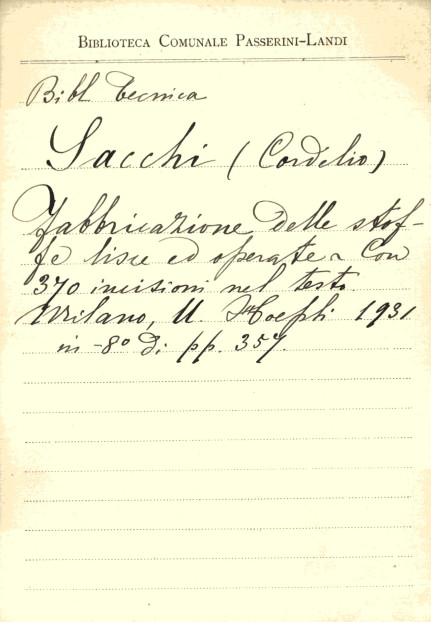 BIBLIOTECA COMUNALE PASSERINI-LANDI
Bibl Tecnica
Sacchi (Cordelio)
Fabbricazione delle stof-
fe lisce ed operate - Con
370 incisioni nel testo.
Milano, U. Hoepli 1931
in -8° di pp. 357.